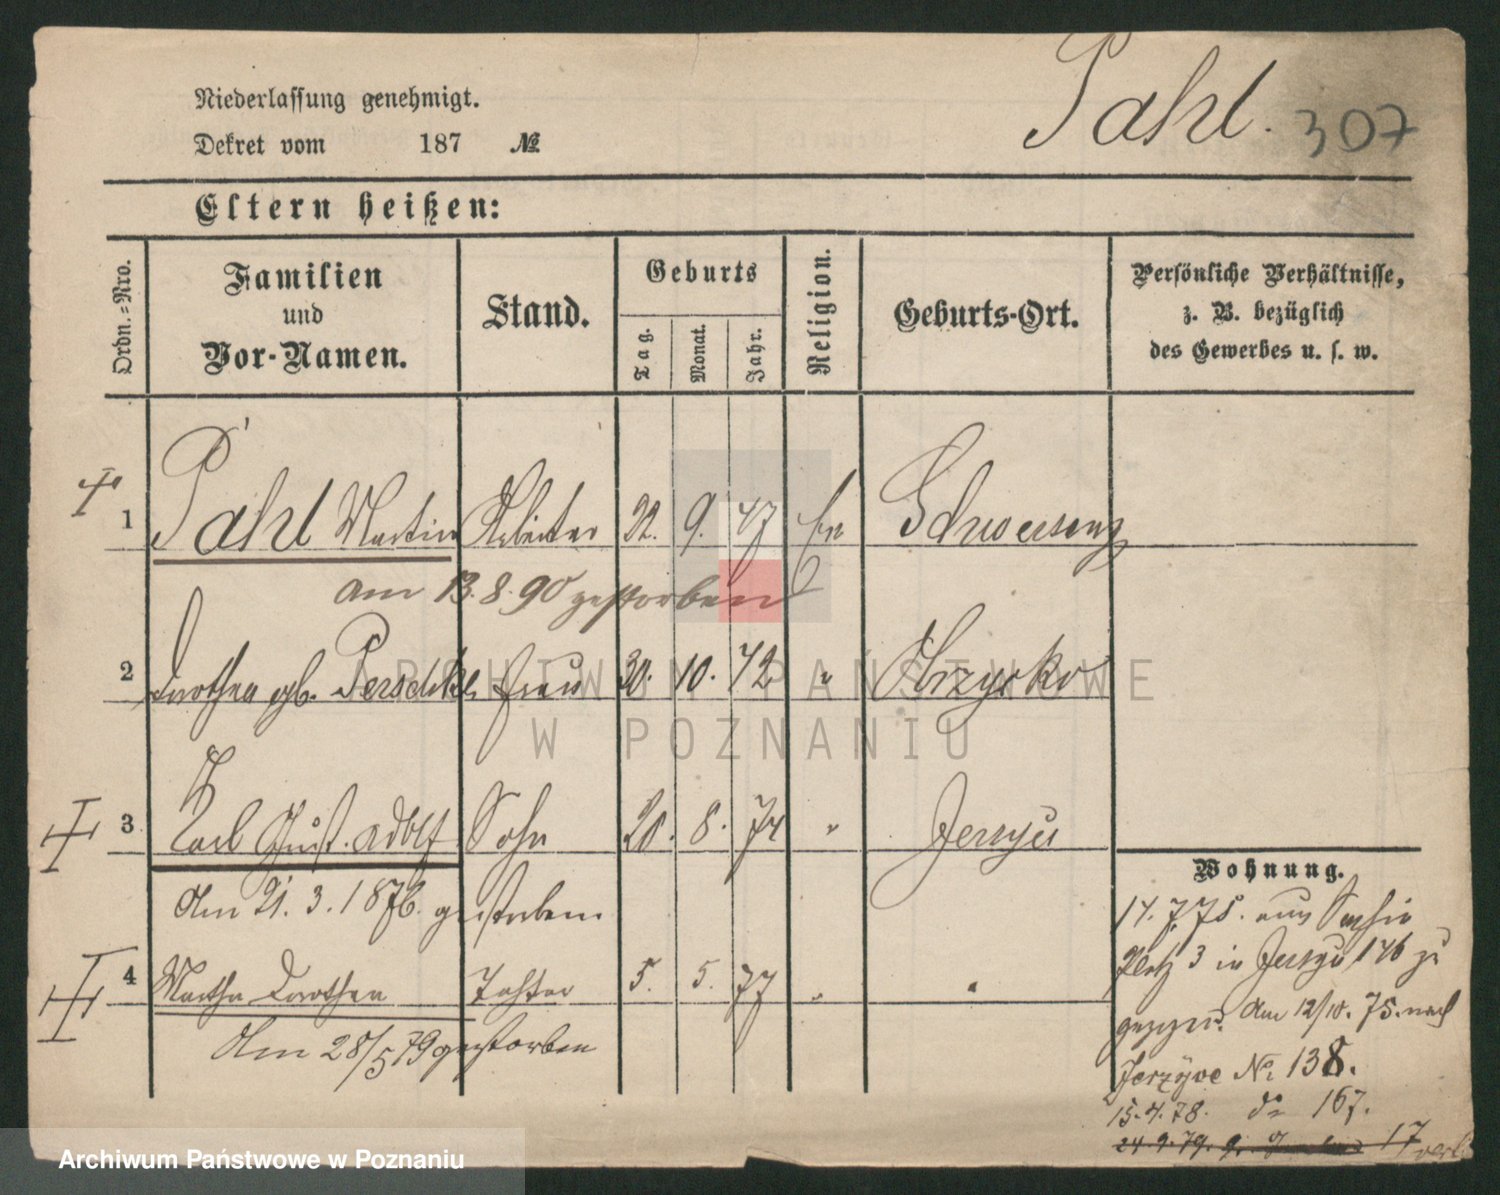 Pahl. 307
Niederlassung genehmigt.
Dekret vom 187 №
Eltern heißen:
Ordn.-Nro.
Familien
und
Vor-Namen.
Stand.
Geburts
Tag.
Monat.
Jahr.
Religion.
Geburts-Ort.
Persönliche Verhältnisse,
z. B. bezüglich
des Gewerbes u. s. w.
1 Pahl Martin Arbeiter 22. 9. 47 Schwersenz
am 13.8.90 gestorben
2 Dorothea gb. Perschke Frau 30. 10. 42 " Obrzysko
3 Karl Gust. Adolf Sohn 20. 8. 74 " Jerzyce
Am 21. 3. 1876. gestorben
4 Martha Dorothea Tochter 5. 5. 77 " "
Am 28/5 79 gestorben
Wohnung.
14. 7. 75. aus
Platz 3 in Jerzyce 146 zu
gezogen. Am 12/10. 75. nach
Jerzyce No. 138.
15.4.78. do 167.
24.9.79. 17
ARCHIWUM PAŃSTWOWE
W POZNANIU
Archiwum Państwowe w Poznaniu